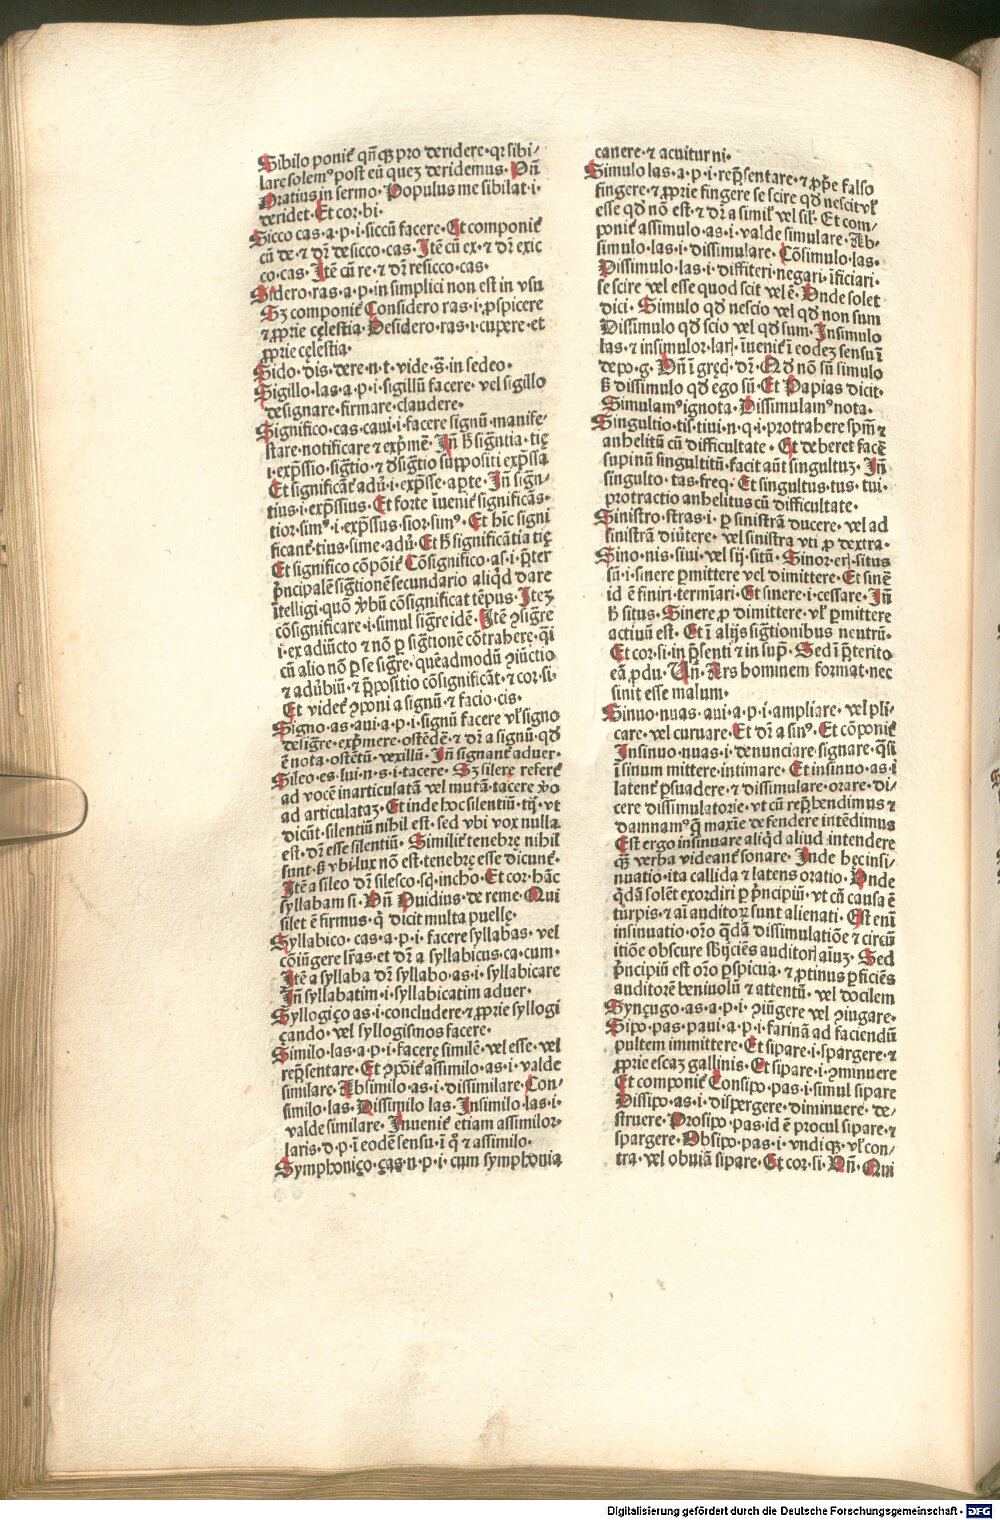 Sibilo poniť qñ qʒ pro deridere·qꝛ sibi⸗
lare solemꝰ post eū quez deridemus· Vñ
Oratius in sermo· Populus me sibilat·i·
deridet·Et cor·bi·
Sicco cas·a·p·i·siccū facere·Et componiť
cū de·⁊ dr̄ desicco·cas·Itē cū ex·⁊ dr̄ exic
co·cas·Itē cū re·⁊ dr̄ resicco·cas·
Sidero·ras·a·p·in simplici non est in vsu
Sꝫ componiť Considero ras·i·ꝓspicere
⁊ ꝓprie cęlestia·Desidero·ras·i·cupere·et
ꝓprie cęlestia·
Sido·dis·dere·n·t·vide·s̄·in sedeo·
Sigillo·las·a·p·i·sigillū facere·vel sigillo
designare·firmare·claudere·
Significo·cas·caui·i·facere signū·manife⸗
stare·notificare ⁊ exp̄mē·Iñ h̄ sigñtia·tię
·i·exp̄ssio·sigt̄io·⁊ ꝯsigt̄io suppositi exp̄ssa
Et significāť adū·i·exp̄sse·apte·Iñ sign̄⸗
tius·i·exp̄ssius·Et forte iueniť significās·
tior·simꝰ·i·exp̄ssus·sior·simꝰ·Et hic signi
ficanť·tius·sime·adū·Et h̄ significātia tię
Et significo cōpōiť Cōsignifico·as·i·p̄ter
p̄ncipalē sigt̄ionē secundario aliqd̄ dare
ītelligi·quō ṽbū cōsignificat tēpus·Itez
cōsignificare·i·simul sigr̄e idē·Itē ꝯsigr̄e
·i·ex adiūcto ⁊ nō ꝑ sigt̄ionē cōtrahere·q̄i
cū alio nō ꝑ se sigr̄e·quēadmodū ꝯiūctio
⁊ adūbiū·⁊ p̄positio cōsignificāt·⁊ cor·si·
Et videť ꝯponi a signū·⁊ facio·cis·
Signo·as·aui·a·p·i·signū facere vł signo
designr̄e·exp̄mere·ostēdē·⁊ dr̄ a signū·qd̄
ē nota·ostētū·vexillū·Iñ signanť aduer·
Sileo·es·lui·n·s·i·tacere·Sꝫ silere referť
ad vocē inarticulatā vel mutā·tacere ṽo
ad articulataz·Et inde hoc silentiū·tij·vt
dicūt·silentiū nihil est·sed vbi vox nulla
est·dr̄ esse silentiū·Similiť tenebrę nihil
sunt·s̄ vbi·lux nō est·tenebrę esse dicunť·
Itē a sileo dr̄ silesco·sq̇·incho·Et cor·hāc
syllabam si·Vñ Ouidius·de reme·Qui
silet ē firmus·q̄ dicit multa puellę·
Syllabico·cas·a·p·i·facere syllabas·vel
cōiūgere lr̄as·et dr̄ a syllabicus·ca·cum·
Itē a syllaba dr̄ syllabo·as·i·syllabicare
Iñ syllabatim·i·syllabicatim aduer·
Syllogiço as·i·concludere·⁊ ꝓprie syllogi
çando·vel syllogismos facere·
Similo·las·a·p·i·facere similē·vel esse·vel
rep̄sentare·Et ꝯpōiť assimilo·as·i·valde
similare·Absimilo·as·i·dissimilare·Con⸗
similo·las·Dissimilo las·Insimilo·las·i·
valde similare·Inueniť etiam assimilor·
laris·d·p·ī eodē sensu·ī q̄ ⁊ assimilo·
Symphoniço·ças·n·p·i·cum symphonia
canere·⁊ acuitur ni·
Simulo las·a·p·i·rep̄sentare·⁊ ꝓp̄e falso
fingere·⁊ ꝓprie fingere se scire qd̄ nescit vł
esse qd̄ nō est·⁊ dr̄ a simił vel sił·Et com⸗
poniť assimulo·as·i·valde simulare·Ab⸗
simulo·las·i·dissimulare·Cōsimulo·las·
Dissimulo·las·i·diffiteri·negari·īficiari·
se scire vel esse quod scit vel ē·Vnde solet
dici·Simulo qd̄ nescio vel qd̄ non sum
Dissimulo qd̄ scio vel qd̄ sum·Insimulo
las·⁊ insimulor·laꝝ·īueniť ī eodez sensu ī
de po·g·Vñ ī gręcꝫ·dr̄·Qd̄ nō sū simulo
s̄ dissimulo qd̄ ego sū·Et Papias dicit·
Simulamꝰ ignota·Dissimulamꝰ nota·
Singultio·tis·tiui·n·q·i·protrahere spm̄ ⁊
anhelitū cū difficultate·Et deberet facē
supinū singultitū·facit aūt singultuz·Iñ
singulto·tas·freq̇·Et singultus·tus·tui·
protractio anhelitus cū difficultate·
Sinistro·stras·i·ꝑ sinistrā ducere·vel ad
sinistrā diūtere·vel sinistra vti ꝓ dextra·
Sino·nis·siui·vel sij·sitū·Sinor·eꝝ·situs
sū·i·sinere ꝑmittere vel dimittere·Et sinē
id ē finiri·termīari·Et sinere·i·cessare·Iñ
h̄ situs·Sinere ꝓ dimittere·vł ꝑmittere
actiuū est·Et ī alijs sigt̄ionibus neutrū·
Et cor·si·in p̄senti ⁊ in sup̄·Sed ī p̄terito
eā ꝓdu·Vñ·Ars hominem format·nec
sinit esse malum·
Sinuo·nuas·aui·a·p·i·ampliare·vel pli⸗
care·vel curuare·Et dr̄ a sinꝰ·Et cōponiť
Insinuo·nuas·i·denunciare·signare·q̄si
ī sinum mittere·intimare·Et insinuo·as·i
latenť ꝑsuadere·⁊ dissimulare·orare·di⸗
cere dissimulatorie·vt cū rep̄hendimus ⁊
damnamꝰ q̄ maxīe defendere intēdimus
Est ergo insinuare aliqd̄ aliud intendere
qꝫ verba videanť sonare·Inde hęc insi⸗
nuatio·ita callida ⁊ latens oratio·Vnde
qdā solēt exordiri ꝑ p̄ncipiū·vt cū causa ē
turpis·⁊ aī auditoꝝ sunt alienati·Est enī
insinuatio·or̄o qdā dissimulatiōe ⁊ circū
itiōe obscure sb̄ijciēs auditoꝝ aiūz·Sed
p̄ncipiū est or̄o ꝑspicua·⁊ ꝓtinus ꝑficiēs
auditorē beniuolū ⁊ attentū·vel docilem
Synçugo·as·a·p·i·ꝯiūgere vel ꝯiugare·
Sipo·pas·paui·a·p·i·farinā ad faciendū
pultem immittere·Et sipare·i·spargere·⁊
ꝓprie escaz gallinis·Et sipare·i·ꝯminuere
Et componiť Consipo·pas·i·simul sipare
Dissipo·as·i·dispergere·diminuere·de⸗
struere·Prosipo·pas·id ē procul sipare·⁊
spargere·Obsipo·pas·i·vndiqꝫ·vł con⸗
tra·vel obuiā sipare·Et cor·si·Vñ·Qui
Digitalisierung gefördert durch die Deutsche Forschungsgemeinschaft - DFG